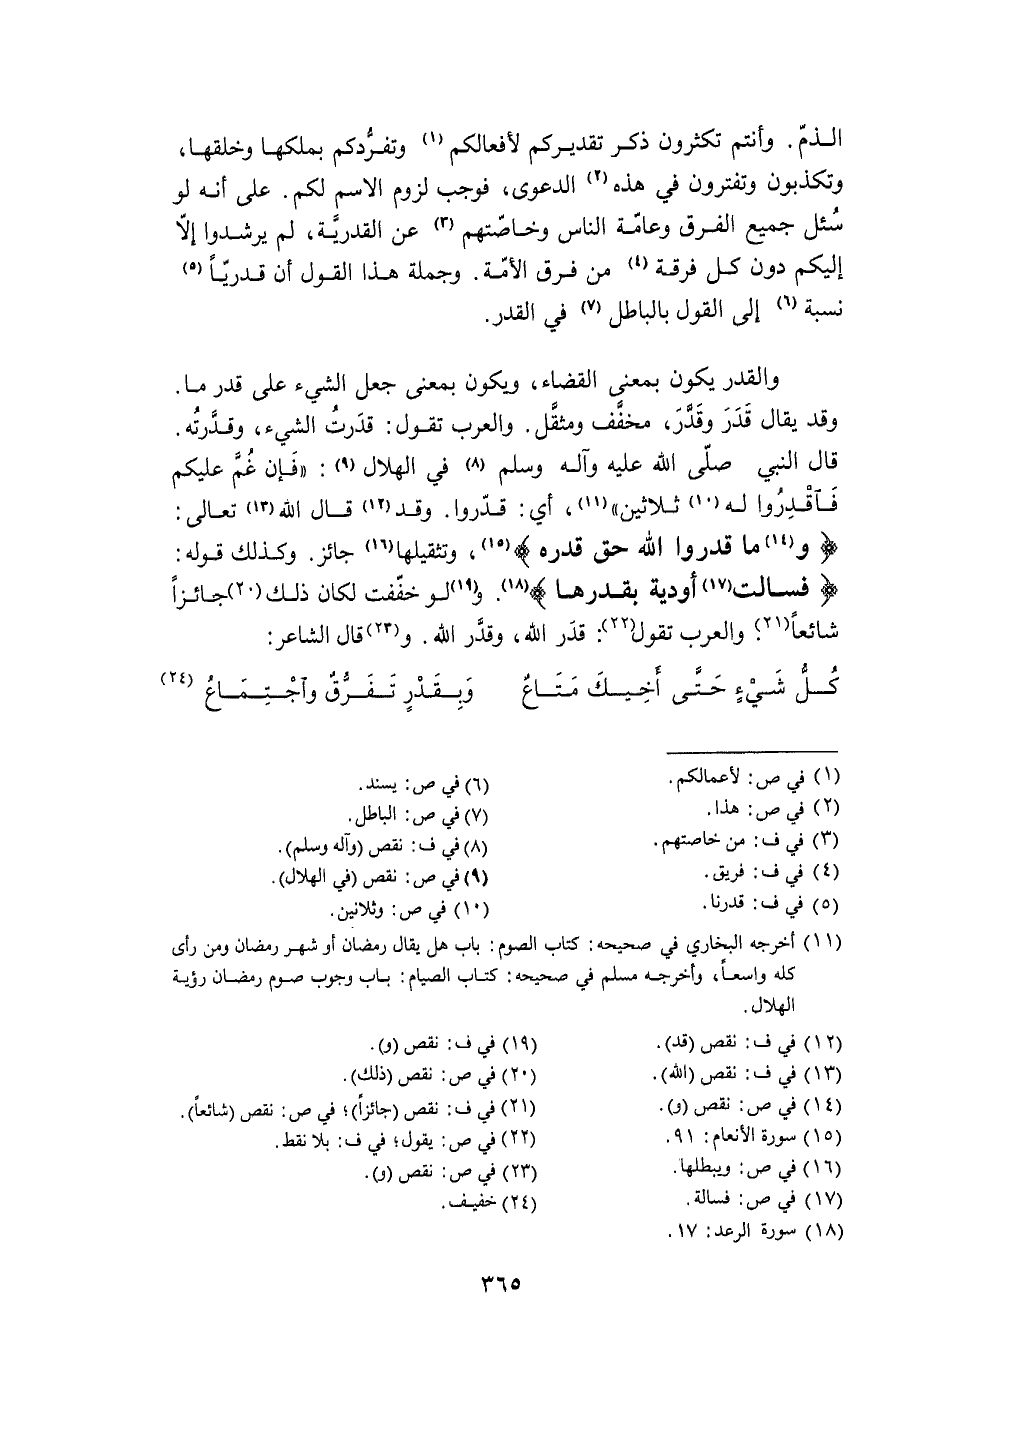 الـذمّ. وأنتم تكثرون ذكـر تقديـركم لأفعالكم (١) وتفـرُّدكم بملكهـا وخلقهـا،
وتكذبون وتفترون في هذه (٢) الدعوى، فوجب لزوم الاسم لكم. على أنـه لو
سُئل جميع الفـرق وعامّـة الناس وخـاصّتهم (٣) عن القدريَّـة، لم يرشـدوا إلاّ
إليكم دون كـل فرقـة (٤) من فـرق الأمّـة. وجملة هـذا القـول أن قـدريّـاً (٥)
نسبة (٦) إلى القول بالباطل (٧) في القدر.
والقدر يكون بمعنى القضاء، ويكون بمعنى جعل الشيء على قدر مـا.
وقد يقال قَدَرَ وقَدَّرَ، مخفَّف ومثقَّل. والعرب تقـول: قدَرتُ الشيء، وقـدَّرتُه.
قال النبي صلّى الله عليه وآلـه وسلم (٨) في الهلال (٩) : «فَـإن غُمَّ عليكم
فَـآقْـدِرُوا لـه(١٠) ثـلاثين»(١١)، أي: قـدّروا. وقـد(١٢) قـال الله(١٣) تعـالى:
﴿ و(١٤)ما قدروا الله حق قدره ﴾(١٥)، وتثقيلها(١٦) جائز. وكـذلك قـوله:
﴿ فسـالت(١٧) أودية بقـدرهـا ﴾(١٨). و(١٩)لـو خفّفت لكان ذلـك(٢٠)جـائـزاً
شائعاً(٢١)؛ والعرب تقول(٢٢): قدَر الله، وقدَّر الله. و(٢٣)قال الشاعر:
كُــلُّ شَــيْءٍ حَـتَّـى أَخِـيــكَ مَـتَــاعٌ وَبِــقَــدْرٍ تَــفَــرُّقٌ وآجْــتِــمَــاعُ (٢٤)
(١) في ص: لأعمالكم.
(٢) في ص: هذا.
(٣) في ف: من خاصتهم.
(٤) في ف: فريق.
(٥) في ف: قدرنا.
(٦) في ص: يسند.
(٧) في ص: الباطل.
(٨) في ف: نقص (وآله وسلم).
(٩) في ص: نقص (في الهلال).
(١٠) في ص: وثلاثين.
(١١) أخرجه البخاري في صحيحه: كتاب الصوم: باب هل يقال رمضان أو شهـر رمضان ومن رأى
كله واسعـاً، وأخرجـه مسلم في صحيحه: كتـاب الصيام: بـاب وجوب صـوم رمضـان رؤيـة
الهلال.
(١٢) في ف: نقص (قد).
(١٣) في ف: نقص (الله).
(١٤) في ص: نقص (و).
(١٥) سورة الأنعام: ٩١.
(١٦) في ص: ويبطلها.
(١٧) في ص: فسالة.
(١٨) سورة الرعد: ١٧.
(١٩) في ف: نقص (و).
(٢٠) في ص: نقص (ذلك).
(٢١) في ف: نقص (جائزاً)؛ في ص: نقص (شائعاً).
(٢٢) في ص: يقول؛ في ف: بلا نقط.
(٢٣) في ص: نقص (و).
(٢٤) خفيـف.
٣٦٥